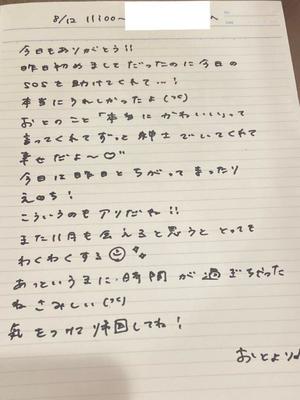 8/12 11:00~
今日もありがとう!!
昨日初めましてだったのに今日の
SOSを助けてくれて…!
本当にうれしかったよ(つ<)
おとのこと「本当にかわいい」って
言ってくれてずっと紳士でいてくれて
幸せだよ〜♡"
今日は昨日とちがってまったり
えのち!
こういうのもアリだね!!
また11月も会えると思うととっても
わくわくする
あっというまに時間が過ぎちゃった
ねさみしい(つ<)
気をつけて帰国してね!
おとより♪